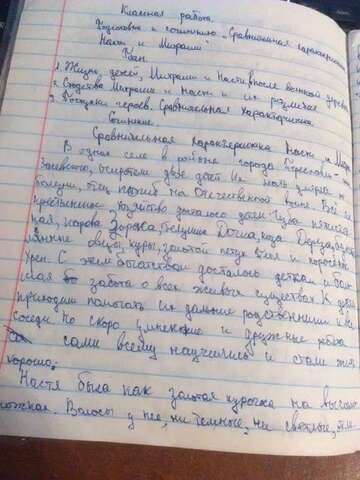 Классная работа.
Подготовка к сочинению. Сравнительная характеристика
Насти и Митраши
План
1. Жизнь детей, Митраши и Насти, после военной
2. Сходства Митраши и Насти и их различия
3. Поступки героев. Сравнительная характеристика.
Сочинение.
Сравнительная характеристика Насти и Митр
В одном селе в районе города Переславля-
Залесского, осиротели двое детей. Их мать умерла от
болезни, отец погиб на Отечественной войне. Всё
крестьянское хозяйство досталось детям. Изба пятистен
ная, корова Зорька, телушка Дочка, коза Дереза,
мянные овцы, куры, золотой петух Петя и поросёнок
Хрен. С этим богатством досталось деткам и боль
шая забота о всех живых существах. К детям
приходили помогать их дальние родственники и
соседи. Но скоро умненькие и дружные ребята
сами всему научились и стали жить
хорошо.
Настя была как золотая курочка на высоких
ножках. Волосы у неё, ни тёмные, ни светлые,